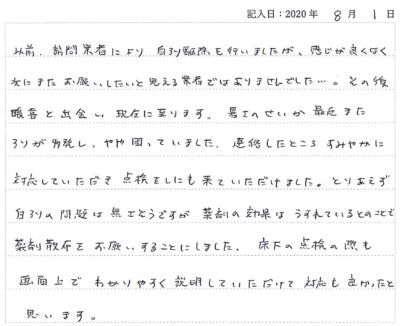 記入日:2020年 8月 1日
以前、訪問業者により白アリ駆除を行いましたが、感じが良くなく
次にまたお願いしたいと思える業者ではありませんでした…。その後
と出会い現在に至ります。暑さのせいか最近また
アリが多発し、やや困っていました。連絡したところすみやかに
対応していただき点検をしにも来ていただけました。とりあえず
白アリの問題は無さそうですが薬剤の効果はうすれているとのことで
薬剤散布をお願いすることにしました。床下の点検の際も
画面上でわかりやすく説明していただけて対応も良かったと
思います。